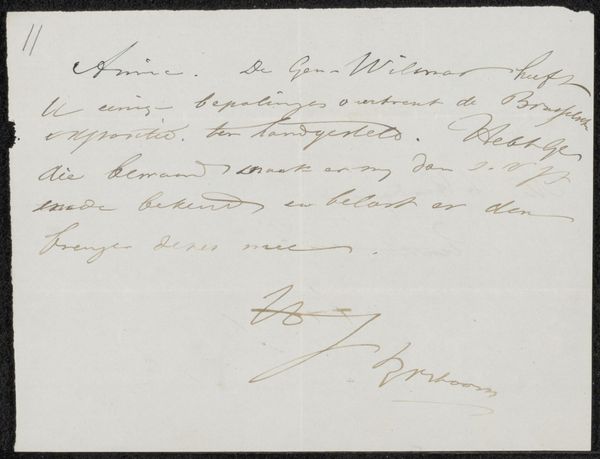 11
Amice. De Gen. Wilmar heeft
U eenige bepalingen omtrent de Brusselsche
expositie ter hand gesteld. Hebt Ge
die bewaard maak er mij dan s.v.pl
mede bekend en belast er den
brenger dezes mee.
W J